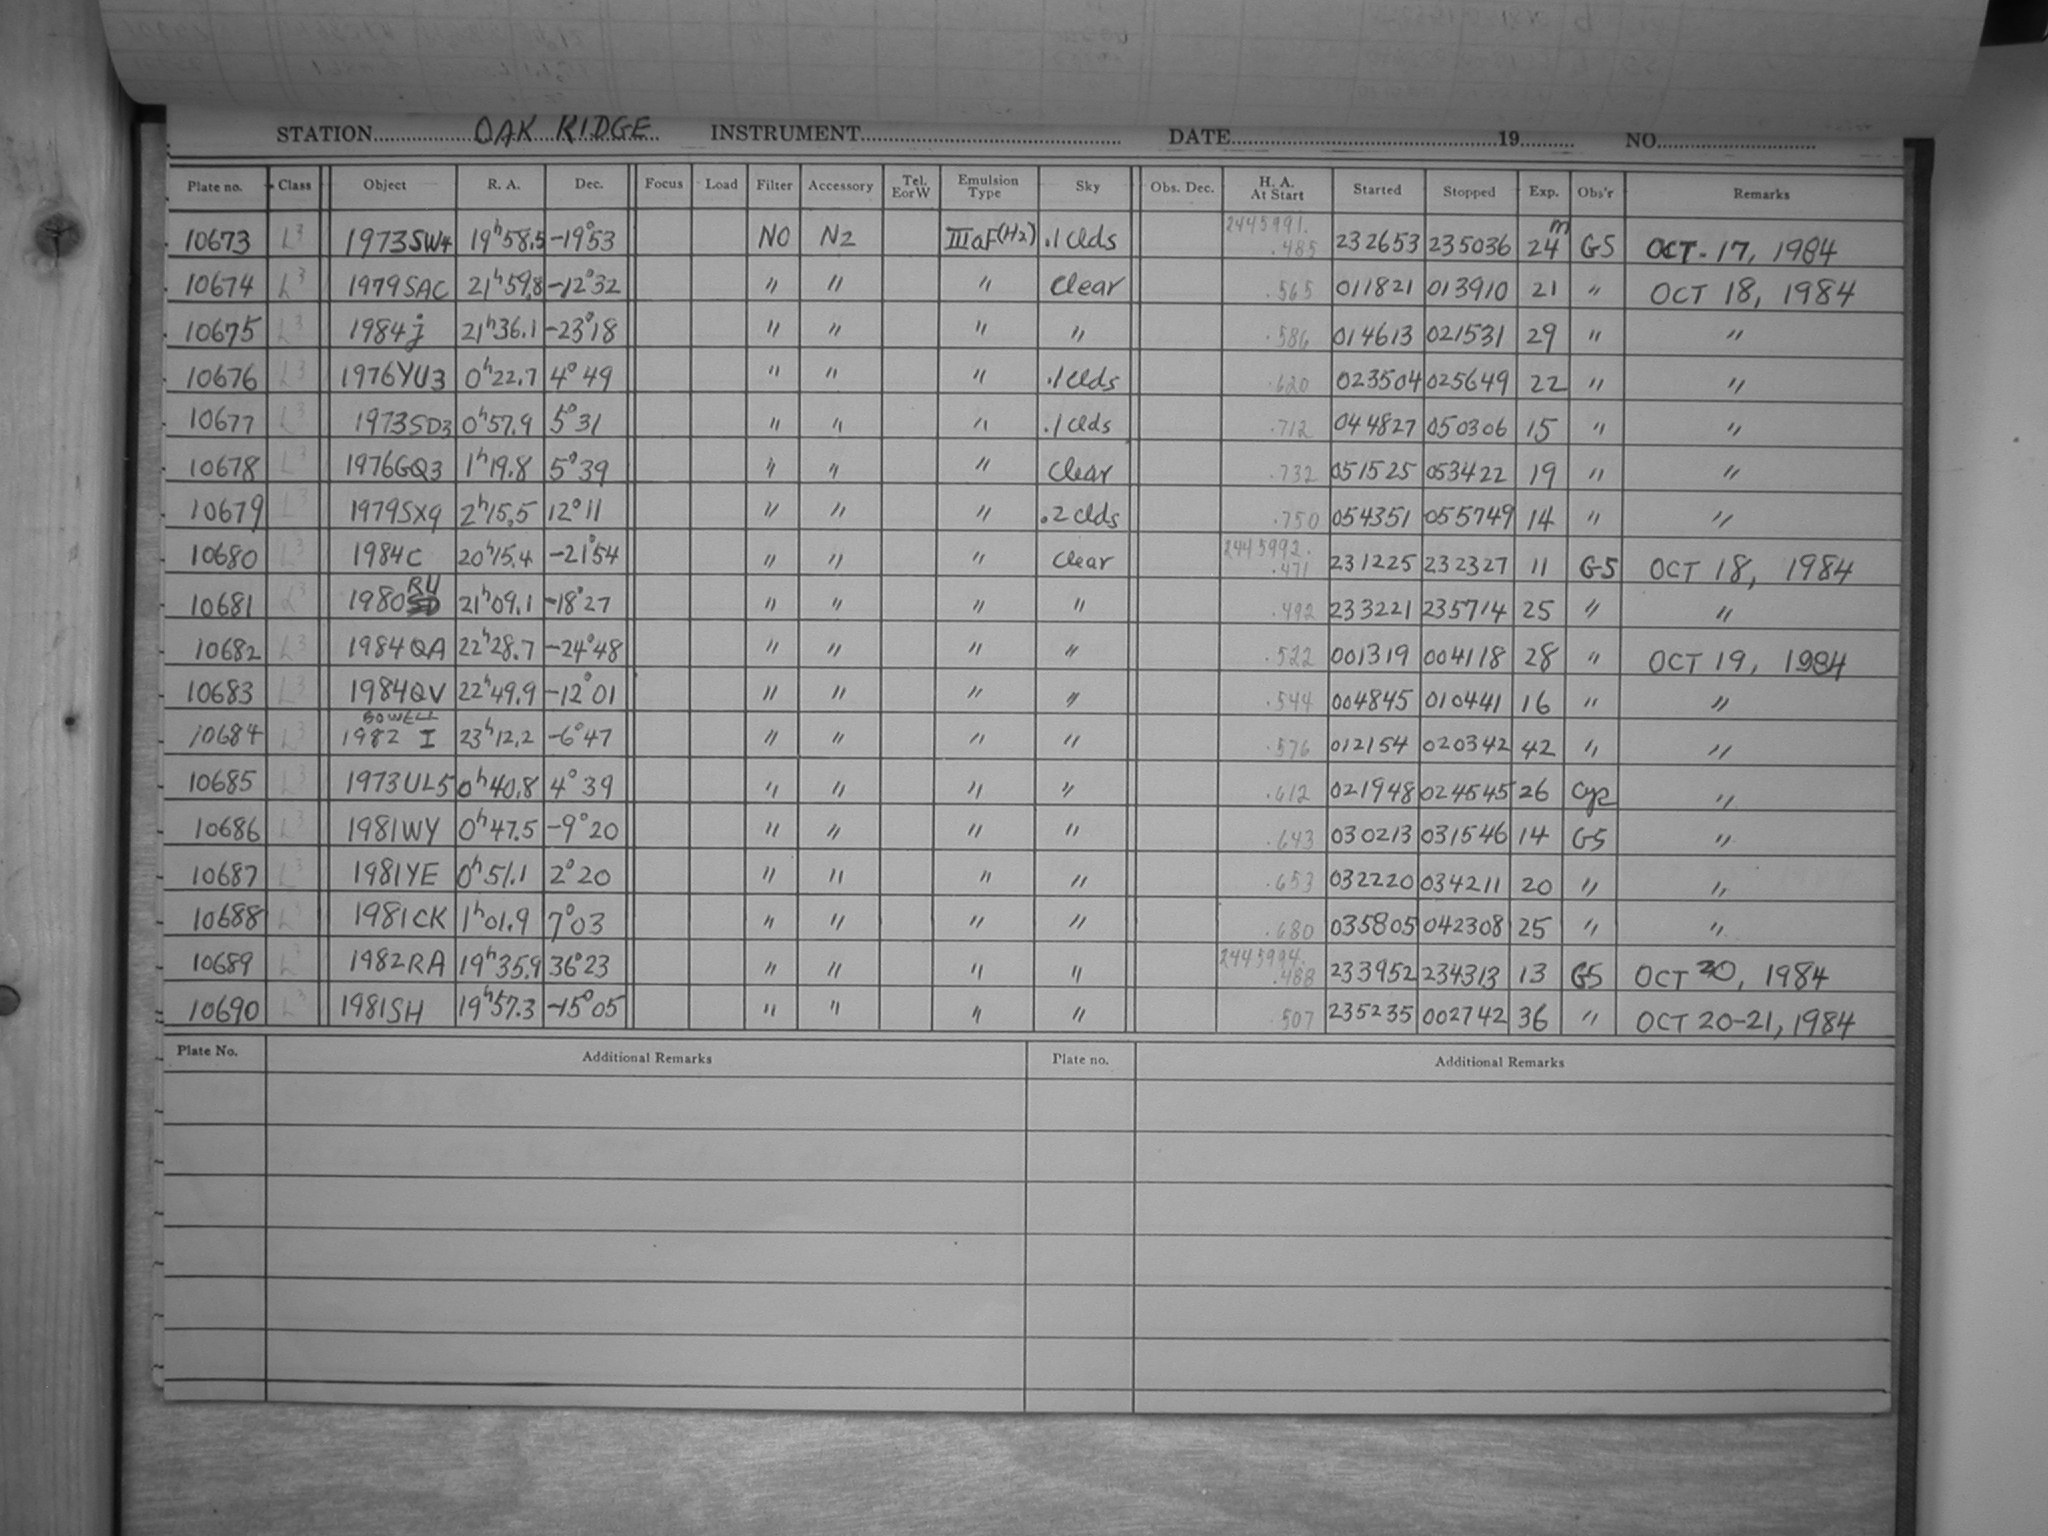 STATION OAK RIDGE INSTRUMENT DATE 19 NO.
Plate no. Class Object R. A. Dec. Focus Load Filter Accessory Tel. EorW Emulsion Type Sky Obs. Dec. H. A. At Start Started Stopped Exp. Obs'r Remarks
10673 L3 1973SW4 19h58.5 -19°53 NO N2 IIIaF(H2) .1 Clds 2445991. .485 232653 235036 24m GS OCT. 17, 1984
10674 L3 1979SAC 21h59.8 -12°32 " " " Clear .565 011821 013910 21 " OCT 18, 1984
10675 L3 1984j 21h36.1 -23°18 " " " " .586 014613 021531 29 " "
10676 L3 1976YU3 0h22.7 4°49 " " " .1Clds .620 023504 025649 22 " "
10677 L3 1973SD3 0h57.9 5°31 " " " .1Clds .712 044827 050306 15 " "
10678 L3 1976GQ3 1h19.8 5°39 " " " Clear .732 051525 053422 19 " "
10679 L3 1979SX9 2h15.5 12°11 " " " .2 Clds .750 054351 055749 14 " "
10680 L3 1984C 20h15.4 -21°54 " " " Clear 2445992. .471 231225 232327 11 GS OCT 18, 1984
10681 L3 1980RU 21h09.1 -18°27 " " " " .492 233221 235714 25 " "
10682 L3 1984QA 22h28.7 -24°48 " " " " .522 001319 004118 28 " OCT 19, 1984
10683 L3 1984QV 22h49.9 -12°01 " " " " .544 004845 010441 16 " "
10684 L3 BOWELL 1982 I 23h12.2 -6°47 " " " " .576 012154 020342 42 " "
10685 L3 1973UL5 0h40.8 4°39 " " " " .612 021948 024545 26 "
10686 L3 1981WY 0h47.5 -9°20 " " " " .643 030213 031546 14 GS "
10687 L3 1981YE 0h51.1 2°20 " " " " .653 032220 034211 20 " "
10688 L3 1981CK 1h01.9 7°03 " " " " .680 035805 042308 25 " "
10689 L3 1982RA 19h35.9 36°23 " " " " 2445994. .488 233952 234313 13 GS OCT 20, 1984
10690 L3 1981SH 19h57.3 -15°05 " " " " .507 235235 002742 36 " OCT 20-21, 1984
Plate No. Additional Remarks Plate no. Additional Remarks